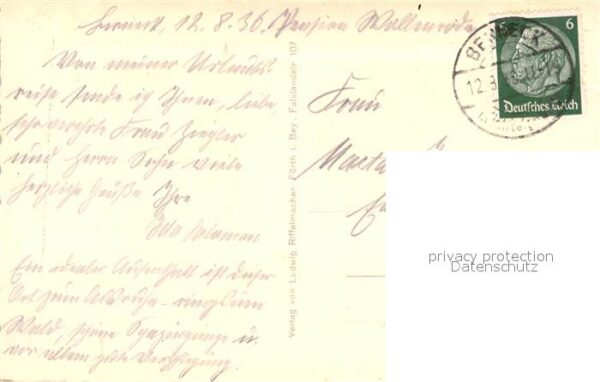 Berneck, 12. 8. 36, Pension Wallenrode
Von meiner Urlaubs-
reise sende ich Ihnen, liebe,
sehr verehrte Frau Ziegler
und Herrn Sohn viele
herzliche Grüße Ihre
Ida Salomon
Ein idealer Aufenthalt ist dieser
Ort zum Ausruhn - ringsum
Wald, schöne Spaziergänge u.
vor allem gute Verpflegung.
Verlag von Ludwig Riffelmacher, Fürth i. Bay., Falklandstr. 107
Frau
BERNECK
12.8.
6
Deutsches Reich
privacy protection
Datenschutz